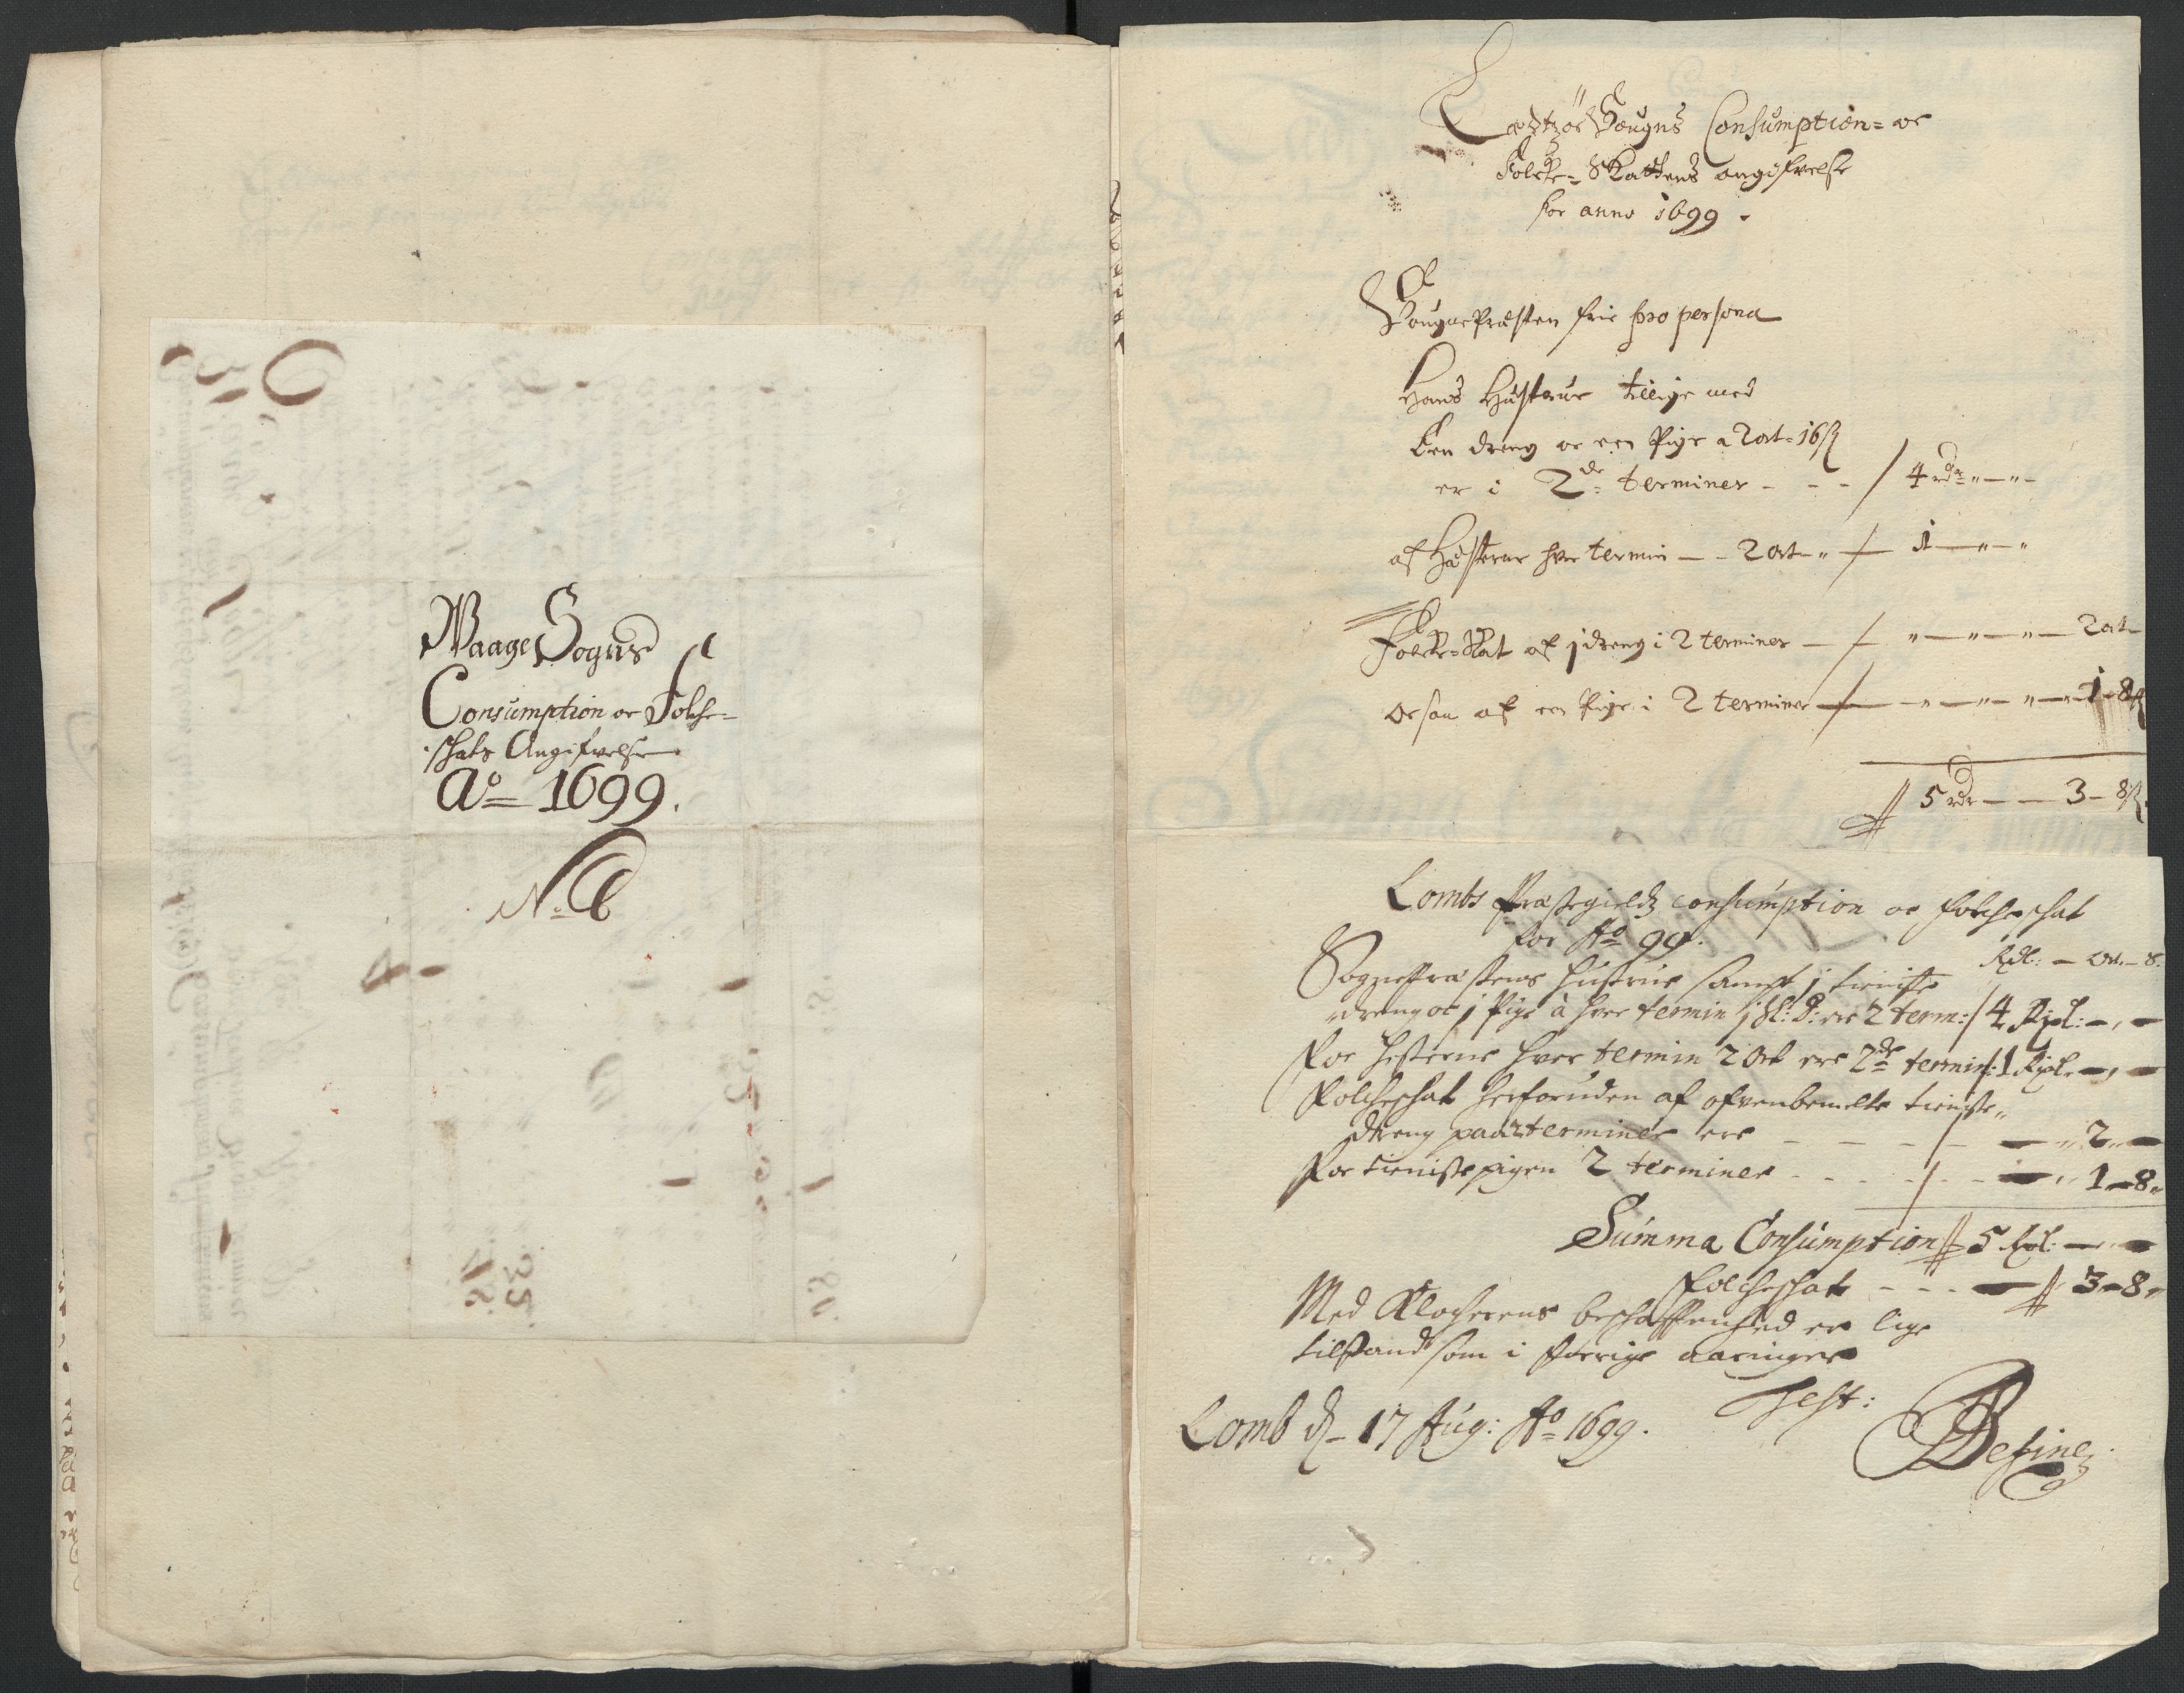 Waage Sogns
Consumption oc Folche-
schats Angifvelse
Ao 1699.
No 6
Sougns Consumption= oc
Folcke= Skattens angifvelse
for anno 1699.
Sougnepræsten frie pro persona
Hans Hustrue tillige med
Een dreng oc een Pige a 2 ort= 16 ß
er i 2de terminer - - - / 4 rdr „ — „ -
af Hæsterne hver termin — - 2 ort - „ / 1 — „ — „
Folcke=Skat af j dreng i 2 terminer — / „ — „ — „ — 2 ort -
Ocsaa af een Pige i 2 terminer / - „ — „ - „ — 1 - 8 ß
5 rdr — — 3 - 8 ß
Lombs Præstegields consumption oc folcheschat
for Ao 99.
Rdl: - Ort. - ß.
Sognepræstens hustrue sampt j tieniste
dreng oc j Pige à hver termin er 2 term: / 4 Rixl: - , -
For hesterne hver termin 2 Ort ere 2de termin: 1 Rixl. - , -
Folcheschat herforuden af ofvenbemelte tieniste„
dreng paa 2 terminer ere - — - / - — „ 2 „ —
For tienistepigen 2 terminer - - - - / - — „ 1 - 8 „
Summa Consumption 5 Rixl: — „ —
Folcheschat - - - — 3 - 8 „
Med Klocherens beschaffenhed er lige
tilstand som i forrige aaringer
Test:
Lomb d. 17 Aug: Ao 1699.